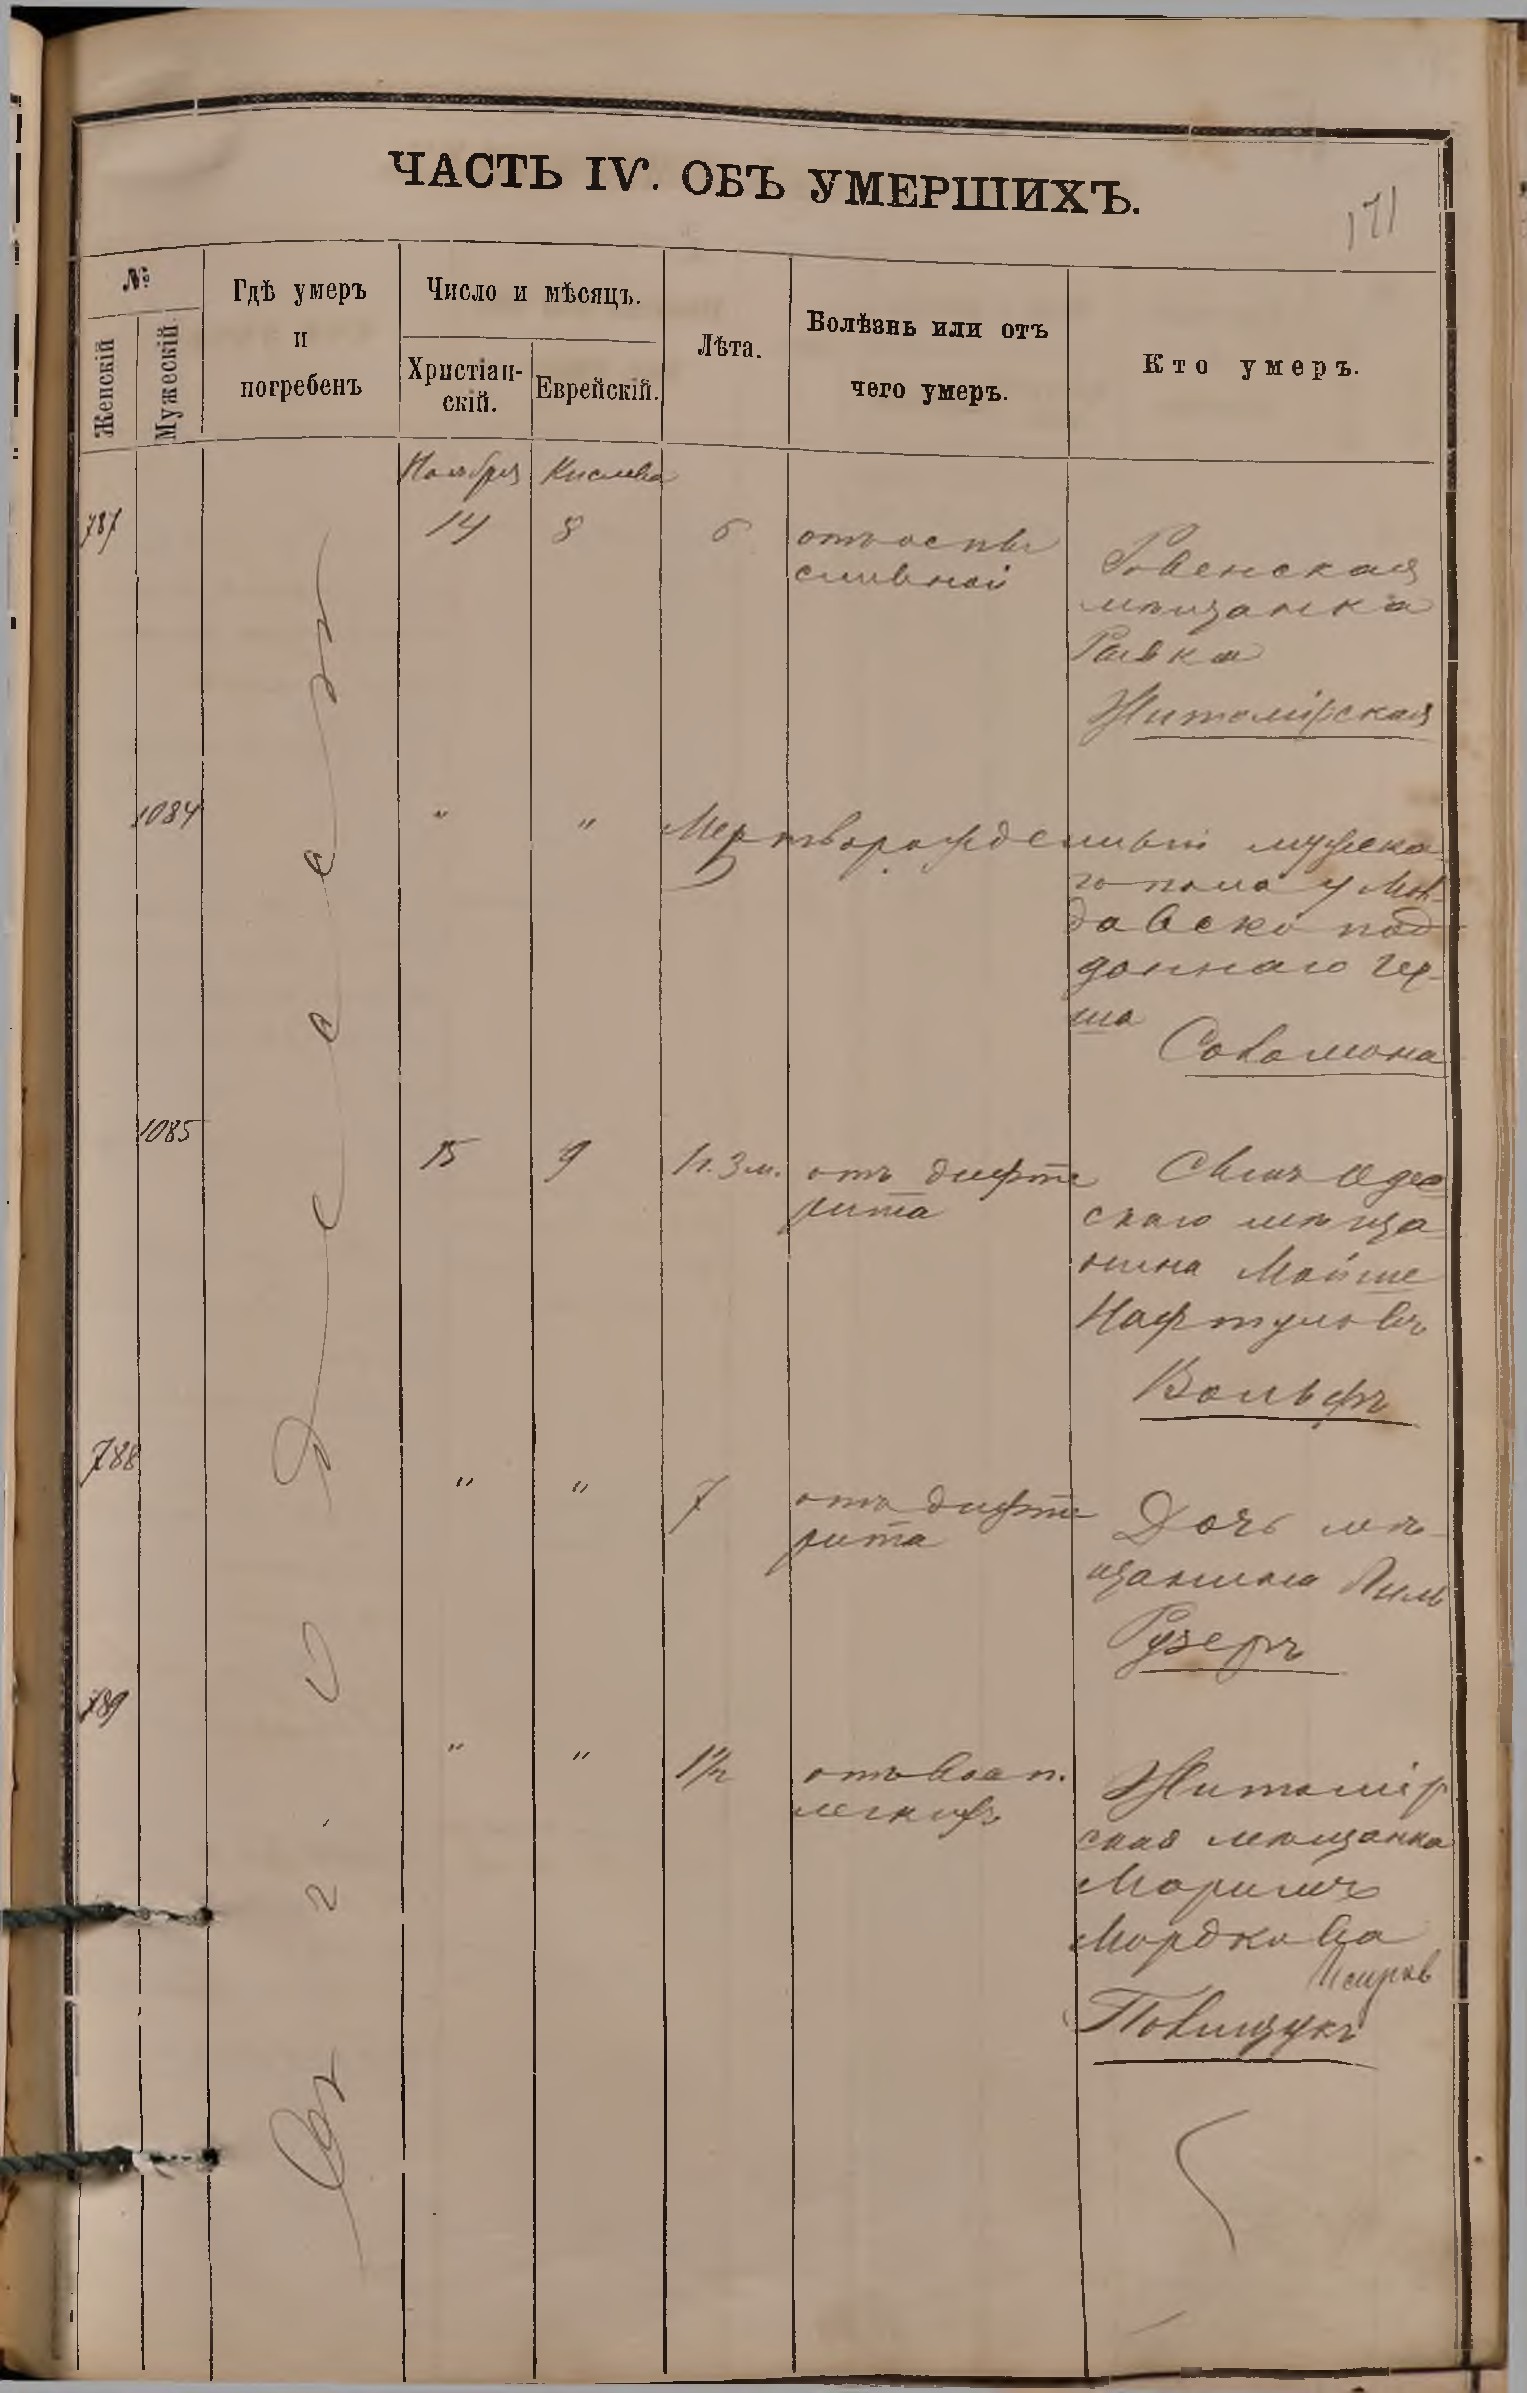 ЧАСТЬ IV. ОБЪ УМЕРШИХЪ.
171
№
Женскій
Мужескій
Гдѣ умеръ
и
погребенъ
Число и мѣсяцъ.
Христіан-
скій.
Еврейскій.
Лѣта.
Болѣзнь или отъ
чего умеръ.
Кто умеръ.
Ноября Кислева
Въ г. Одессѣ
787 14 8 6 отъ оспы
сливной
Ровенская
мѣщанка
Ривка
Житомірская
1084 " " Мертворожденный мужска-
го пола у Мол-
давско под
даннаго Гер-
ша
Соломона
1085 15 9 1 г. 3 м. отъ дифте
рита
Сынъ Одес
скаго мѣща
нина Мойше
Нафтуловъ
Вольфъ
788 " " 7 отъ дифте
рита
Дочь мѣ-
щанина
Рузеръ
789 " " 1 1/2 отъ восп.
легкихъ
Житомір
ская мѣщанка
Маріимъ
Мордкова
Полищукъ